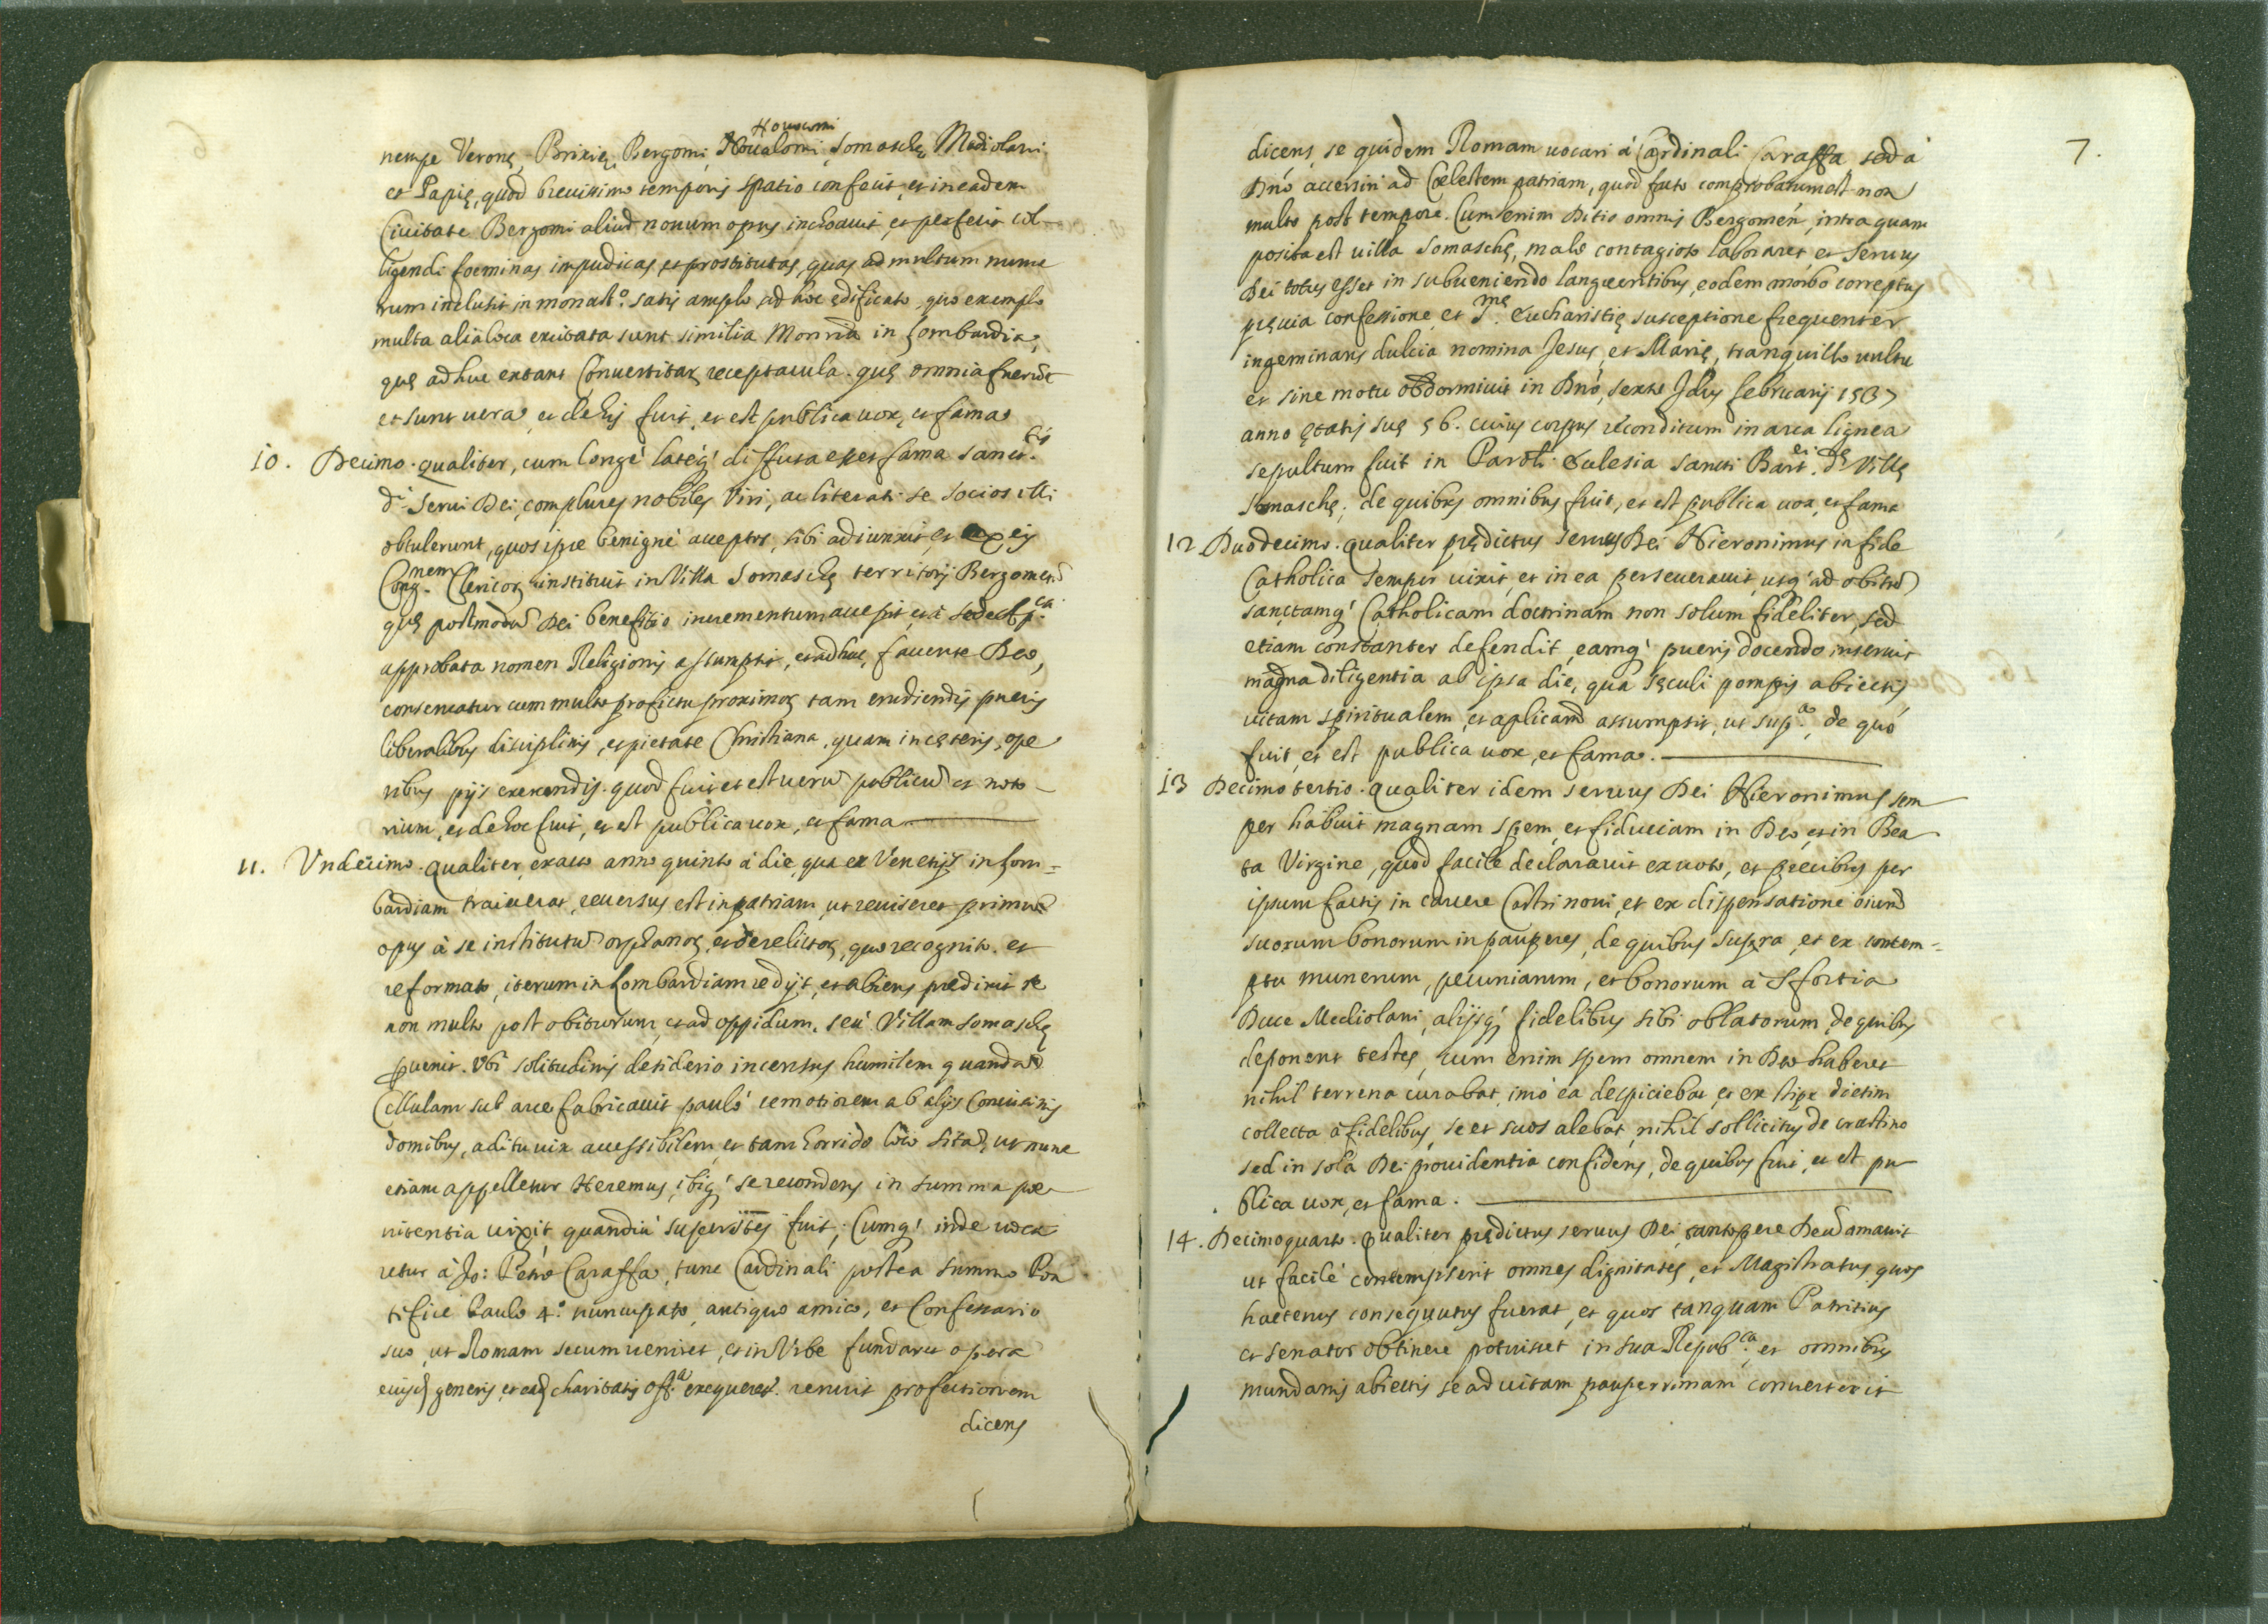 Nouocomi
nempe Veronę, Brixię, Bergomi, Somaschę, Mediolani
et Papię, quod breuissimo temporis spatio confecit, et in eadem
Ciuitate Bergomi aliud nouum opus inchoauit, et perfecit col-
ligendi foeminas impudicas, et prostitutas, quas ad multum nume
rum inclusit in monast.º satis amplo ad hoc edificato, quo exemplo
multa alia loca excitata sunt similia Monria in Lombardia,
quę adhuc extant Conuertitaꝝ receptacula. quę omnia fuerūt
et sunt uera, et de his fuit, et est publica uox, et fama
10. Decimo. qualiter, cum longé latéq; diffusa esset fama sanct.tis
d.i Serui Dei, complures nobiles Viri, ac literati se socios illi
obtulerunt, quos ipse benigné acceptos, sibi adiunxit, et ex eis
Cong.nem Clericoꝝ instituit in Villa Somaschę territorij Bergomen̄
quę postmodū Dei benefitio incrementum accepit, et á sede Ap.ca
approbata nomen Religionis assumpsit, et adhuc, fauente Deo,
conseruatur cum multo profectu proximoꝝ tam erudiendis pueris
liberalibus disciplinis, et pietate Christiana, quam in cęteris, ope
ribus pijs exercendis. quod fuit et est uerū publicū et noto-
rium, et de hoc fuit, et est publica uox, et fama
11. Vndecimo. qualiter, exacto anno quinto á die, qua ex Venetijs in Lom=
bardiam traiecerat, reuersus est in patriam ut reuiseret primū
opus á se institutū orphanoꝝ, et derelictoꝝ, quo recognito. et
reformato, iterum in Lombardiam redijt, et abiens predixit se
non multo post obiturum, et ad oppidum. seú Villam somaschę
ꝑuenit. Vbi solitudinis desiderio incensus humilem quandam
Cellulam sub arce fabricauit pauló remotiorem ab alijs Conuicinis
domibus, aditu uix accessibilem, et tam horrido loco sitā, ut nunc
etiam appelletur Heremus, ibiq; se recondens in summa pœ
nitentia uixit quandiú superstes fuit; Cumq; inde uoca
retur á Jo: Petro Caraffa, tunc Cardinali postea summo Pon
tifice Paulo 4.º nuncupato, antiquo amico, et Confessario
suo, ut Romam secum ueniret, et in Vrbe fundaret opera
eiusd. generis, et ead. charitatis off.a exequeret. renuit profectionem
dicens
7.
dicens, se quidem Romam uocari á Cardinali Caraffa sed á
Dn̄o accersiri ad Cœlestem patriam, quod facto comprobatum est non
multo post tempore. Cum enim Ditio omnis Bergomen̄, intra quam
posita est uilla Somaschę, malo contagioso laboraret, et Seruus
Dei totus esset in subueniendo languentibus, eodem morbo correptus
pręuia confessione, et S.mę Eucharistię susceptione frequenter
ingeminans dulcia nomina Jesus, et Marię, tranquillo uultu
et sine motu obdormiuit in Dn̄o, sexto Idus februarij 1537
anno ętatis suę 56. cuius corpus reconditum in arca lignea
sepultum fuit in Paroli Eclesia sancti Bart.ei d.ę Villę
Somaschę; de quibus omnibus fuit, et est publica uox, et fama
12 Duodecimo. qualiter prędictus seruus Dei Hieronimus in fide
Catholica semper uixit, et in ea perseuerauit, usq; ad obitū
sanctamq; Catholicam doctrinam non solum fideliter, sed
etiam constanter defendit, eamq; pueris docendo inseruit
magna diligentia ab ipsa die, qua sęculi pompis abiectis
uitam spiritualem, et aplicam̄ assumpsit, ut sup.a, de quó
fuit, et est publica uox, et fama.
13 Decimo tertio. qualiter idem seruus Dei Hieronimus sem
per habuit magnam spem, et fiduciam in Deo, et in Bea
ta Virgine, quod facile declarauit ex uoto, et precibus per
ipsum factis in carcere Castri noui, et ex dispensatione oium̄
suorum bonorum in pauperes, de quibus supra, et ex contem=
ptu munerum, pecuniarum, et bonorum á Sfortia
Duce Mediolani, alijsq; fidelibus sibi oblatorum, de quibus
deponent testes, cum enim spem omnem in Deo haberet
nihil terrena curabat, imó ea despiciebat, et ex stipe dietim
collecta á fidelibus, se et suos alebat, nihil sollicitus de crastino
sed in sola Dei prouidentia confidens, de quibus fuit, et est pu
blica uox, et fama.
14. Decimoquarto. qualiter prędictus seruus Dei tantopere Deū amauit
ut facilé contempserit omnes dignitates, et Magistratus, quos
hactenus consequutus fuerat, et quos tanquam Patritius
et senator obtinere potuisset in sua Repub.ca, et omnibus
mundanis abiectis se ad uitam pauperrimam conuerterit